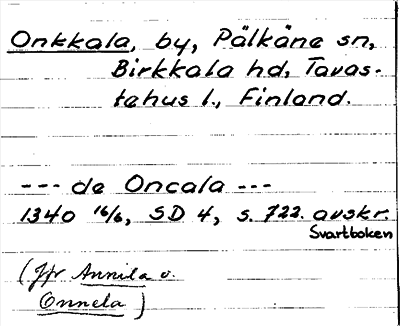 Onkkala, by, Pälkäne sn,
Birkkala hd, Tavas-
tehus l., Finland.
--- de Oncala ---
1340 16/6, SD 4, s. 722. avskr.
Svartboken
(Jfr Annila o.
Onnela)